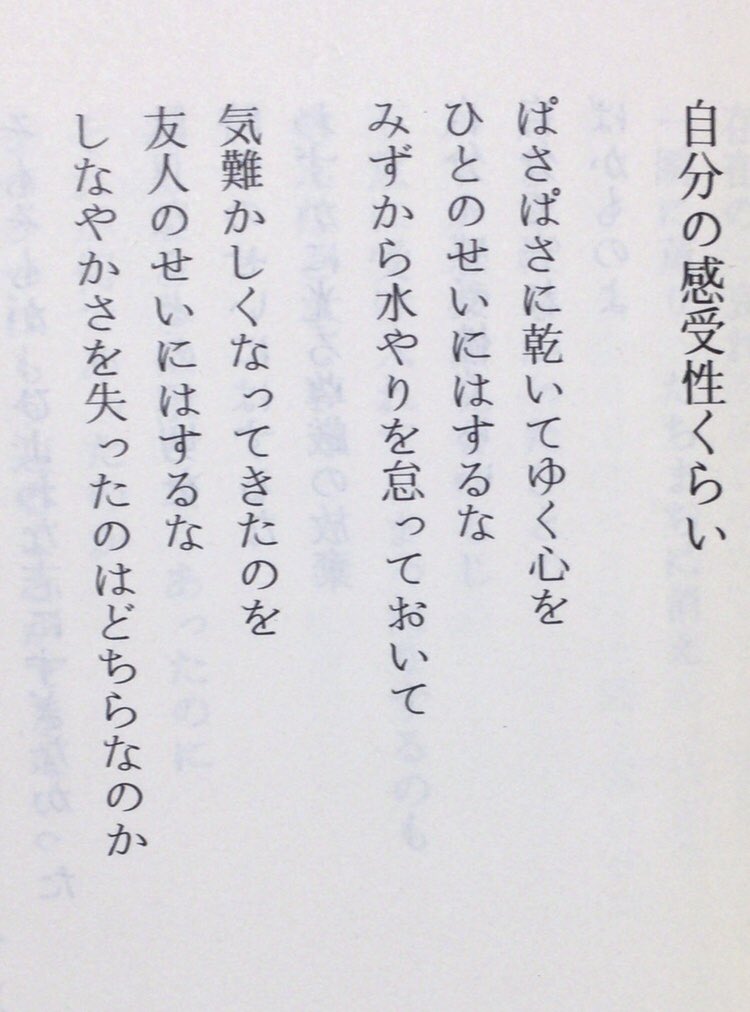 自分の感受性くらい
ぱさぱさに乾いてゆく心を
ひとのせいにはするな
みずから水やりを怠っておいて
気難かしくなってきたのを
友人のせいにはするな
しなやかさを失ったのはどちらなのか